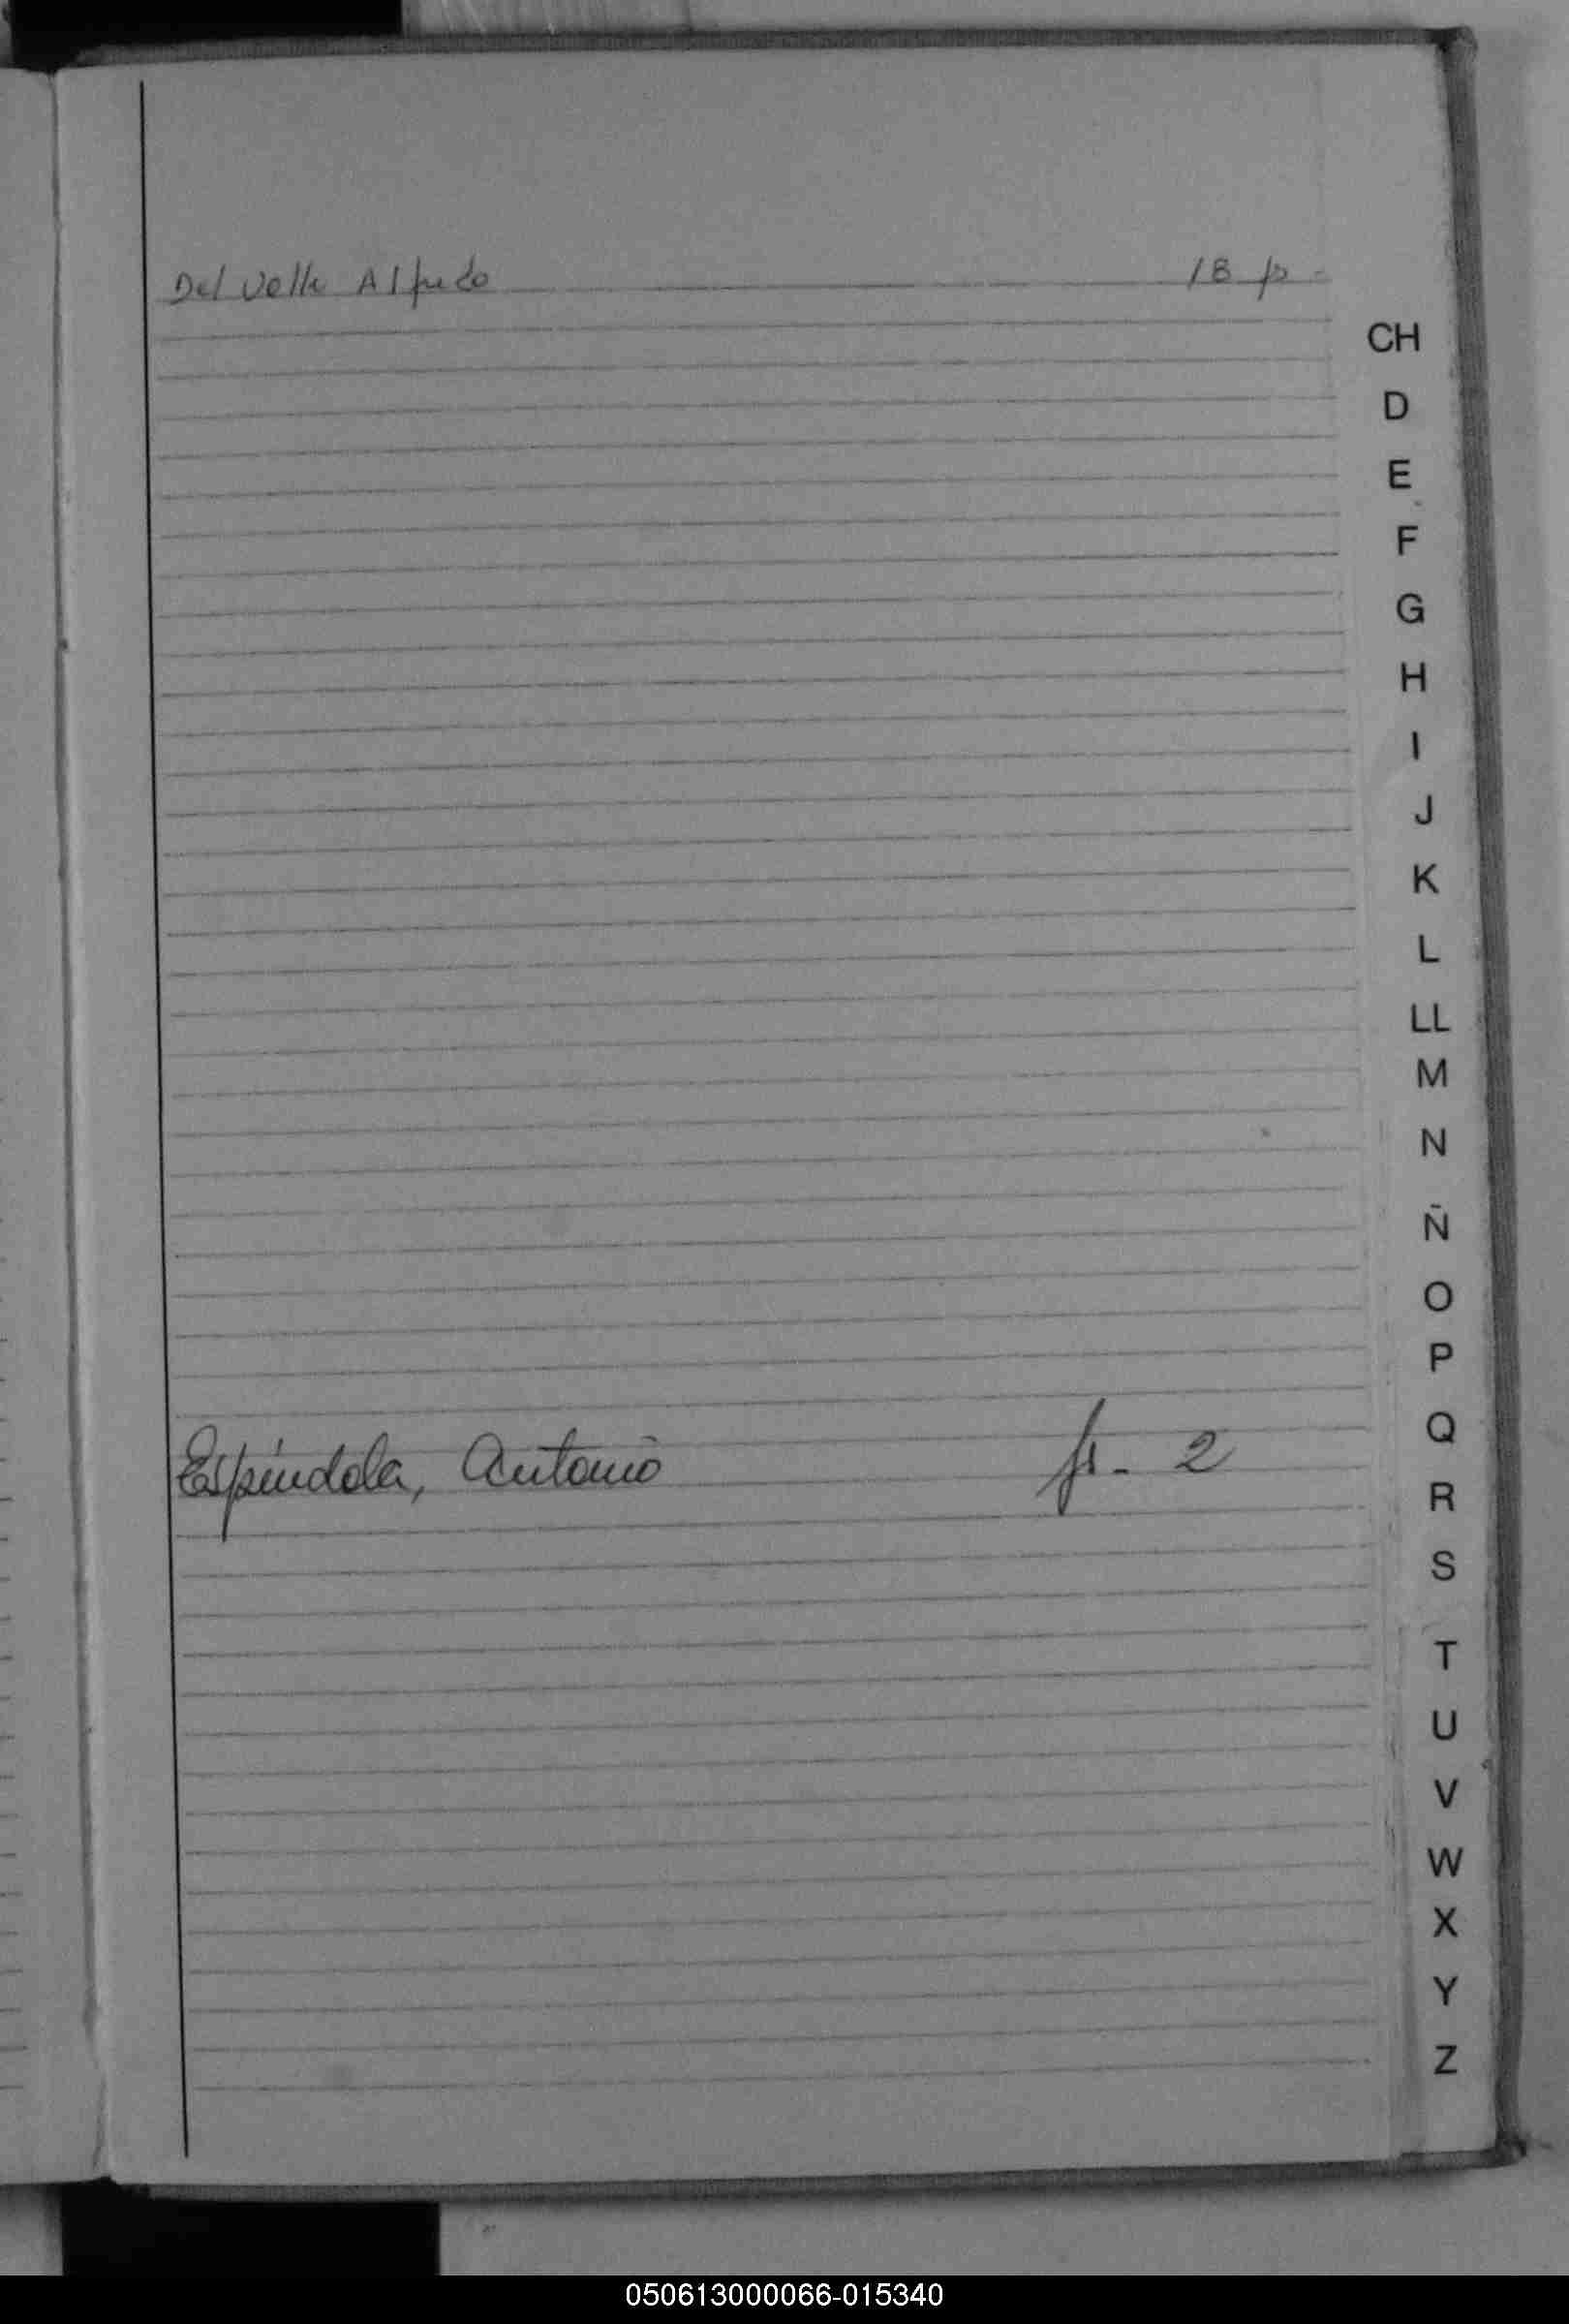 Del Valle Alfredo 18 fs -
CH
D
E
F
G
H
I
J
K
L
LL
M
N
Ñ
O
P
Q
Espíndola, Antonio fs- 2
R
S
T
U
V
W
X
Y
Z
050613000066-015340